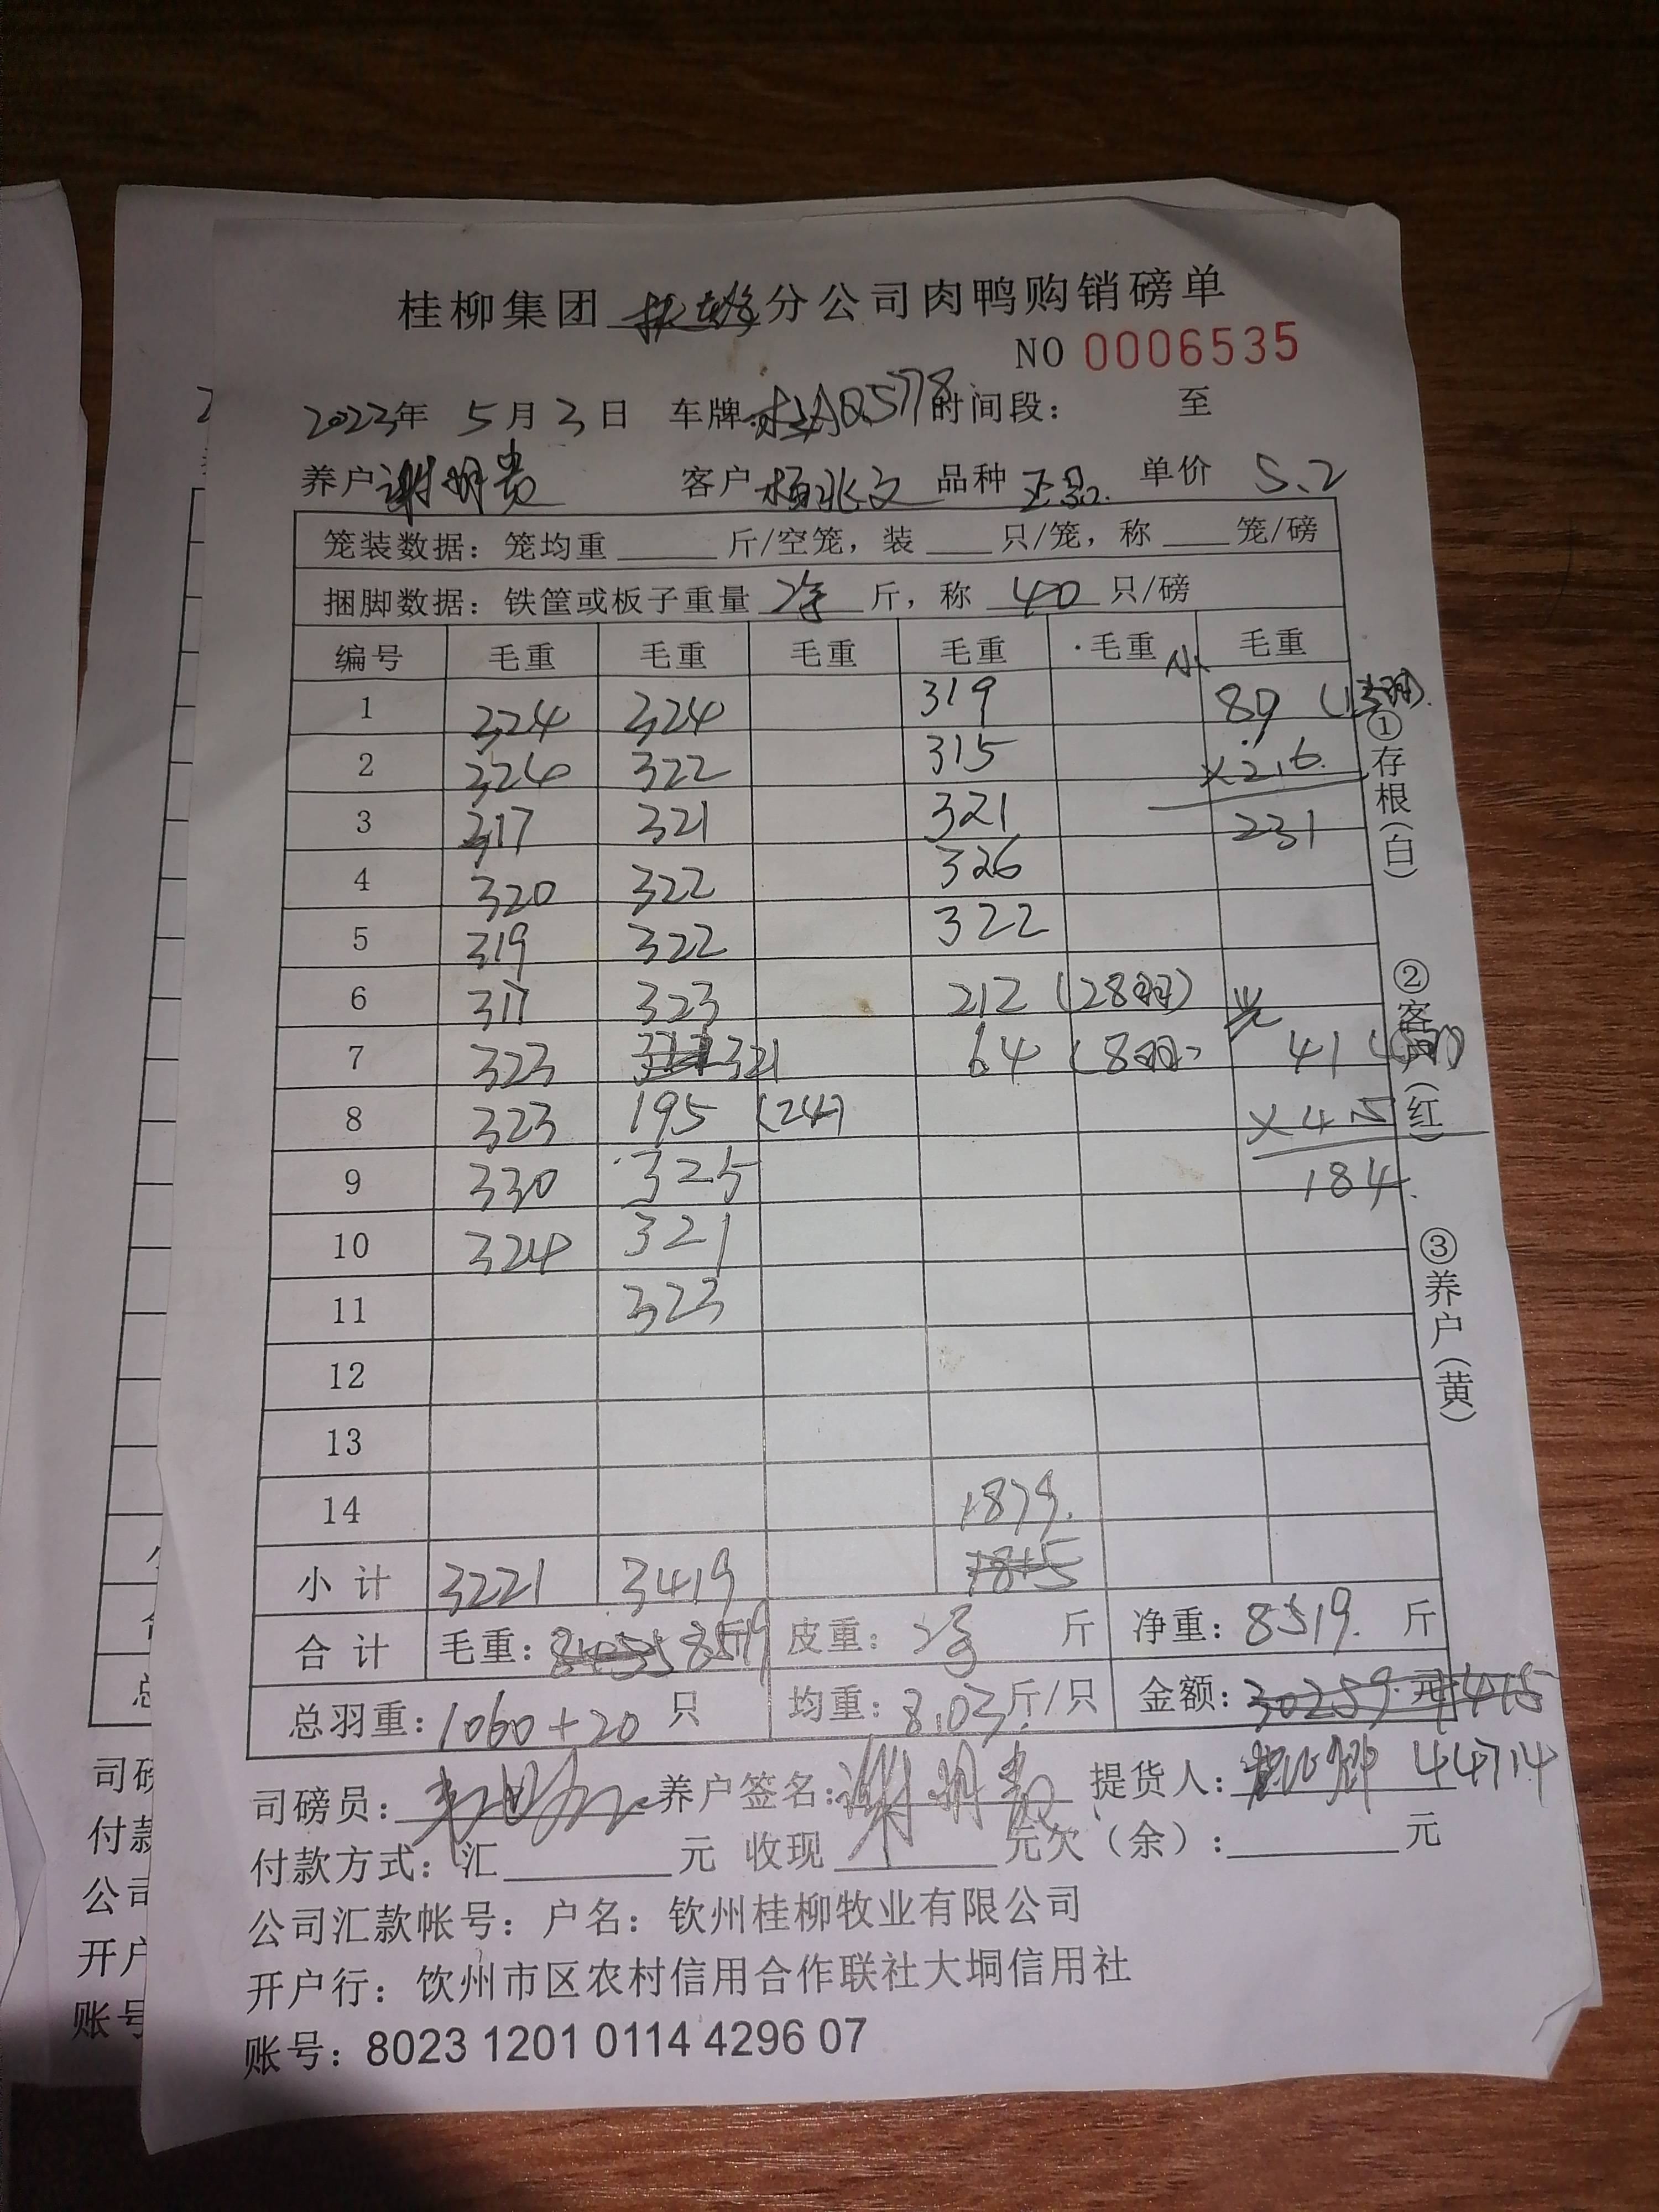 桂柳集团 分公司肉鸭购销磅单
NO 0006535
2023年 5月3日 车牌 0578 时间段: 至
养户 谢明贵 客户 杨兆文 品种 正品 单价 5.2
笼装数据: 笼均重 斤/空笼, 装 只/笼, 称 笼/磅
捆脚数据: 铁筐或板子重量 斤, 称 40 只/磅
编号 毛重 毛重 毛重 毛重 毛重 小 毛重
1 324 324 319 89 (13羽)
2 324 322 315 ×2.6
3 317 321 321 231
4 320 322 326
5 319 322 322
6 317 323 212 (28羽) 光
7 323 321 64 (8羽) 41
8 323 195 (24) ×4.5
9 330 325 184
10 324 321
11 323
12
13
14 1879
小计 3221 3419 1815
合计 毛重: 8519 皮重: 斤 净重: 8519 斤
总羽重: 1060+20 只 均重: 8.03 斤/只 金额: 30259 元 415
司磅员: 养户签名: 谢明贵 提货人: 44714
付款方式: 汇 元 收现 元欠(余): 元
公司汇款帐号: 户名: 钦州桂柳牧业有限公司
开户行: 钦州市区农村信用合作联社大垌信用社
账号: 8023 1201 0114 4296 07
①存根(白)
②客户(红)
③养户(黄)
司磅
付款
公司
开户
账号